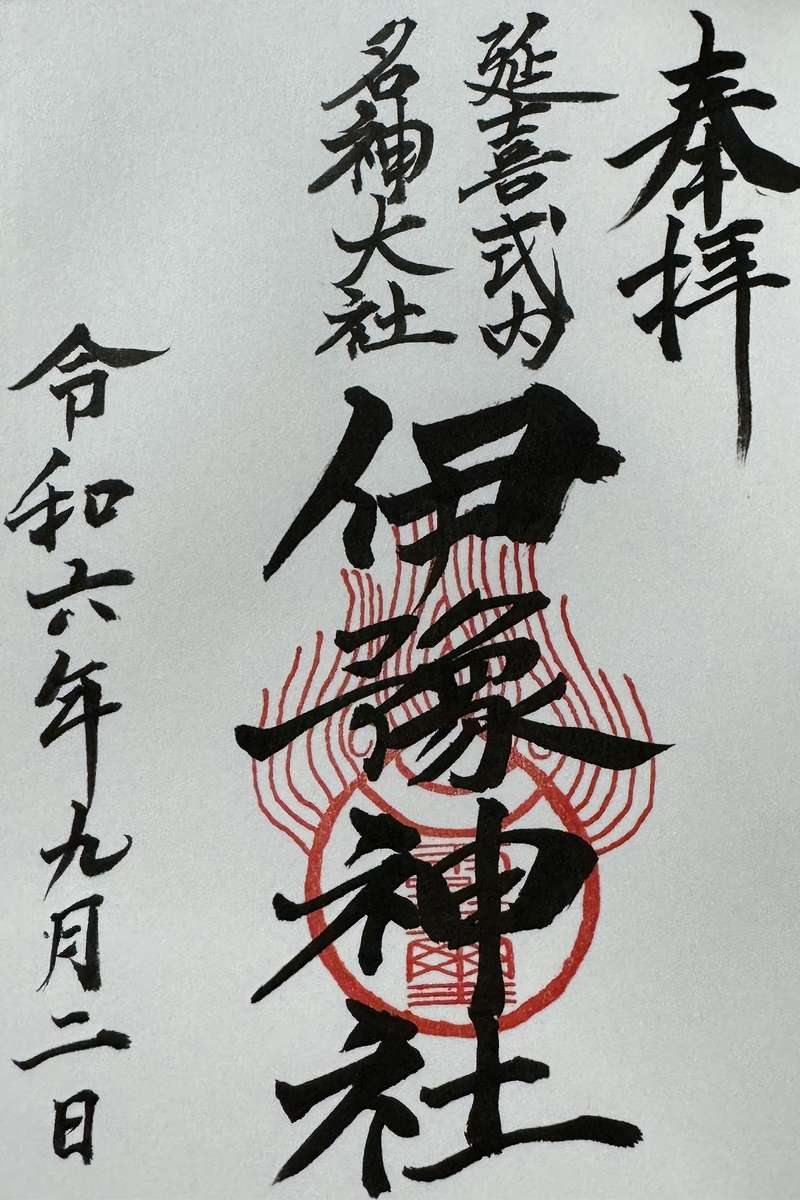 奉拝
延喜式内
名神大社
伊豫神社
令和六年九月二日